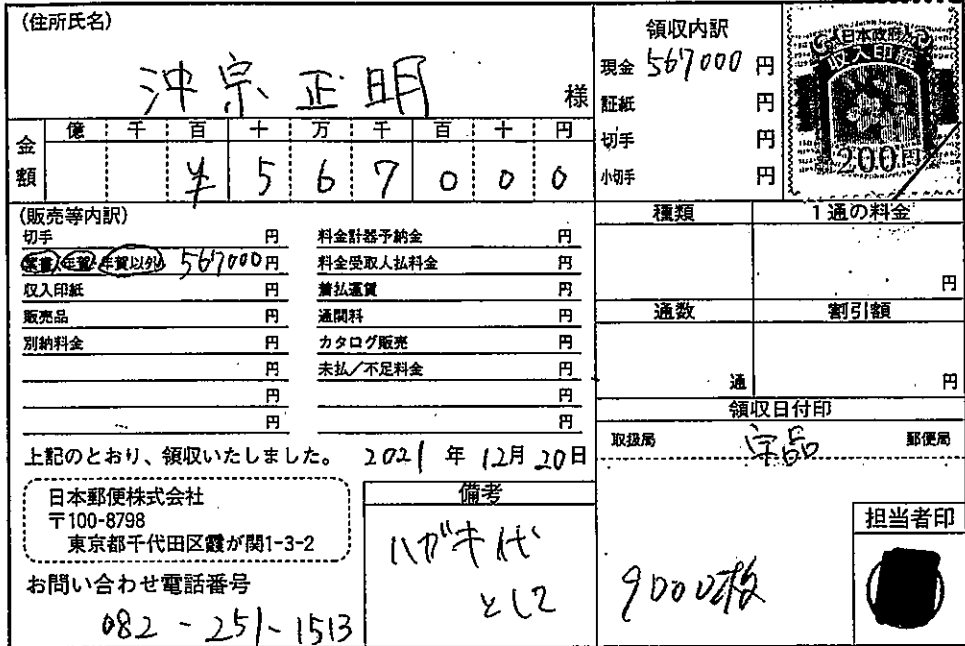 (住所氏名)
沖宗正明 様
金額
億 千 百 十 万 千 百 十 円
¥ 5 6 7 0 0 0
領収内訳
現金 567000 円
証紙 円
切手 円
小切手 円
日本政府
収入印紙
200円
(販売等内訳)
切手 円
葉書(年賀・年賀以外) 567000円
収入印紙 円
販売品 円
別納料金 円
円
円
円
料金計器予納金 円
料金受取人払料金 円
着払運賃 円
通関料 円
カタログ販売 円
未払/不足料金 円
円
円
種類 1通の料金
円
通数 割引額
通 円
領収日付印
取扱局 宇品 郵便局
上記のとおり、領収いたしました。 2021年12月20日
日本郵便株式会社
〒100-8798
東京都千代田区霞が関1-3-2
お問い合わせ電話番号
082-251-1513
備考
ハガキ代
として
9000枚
担当者印